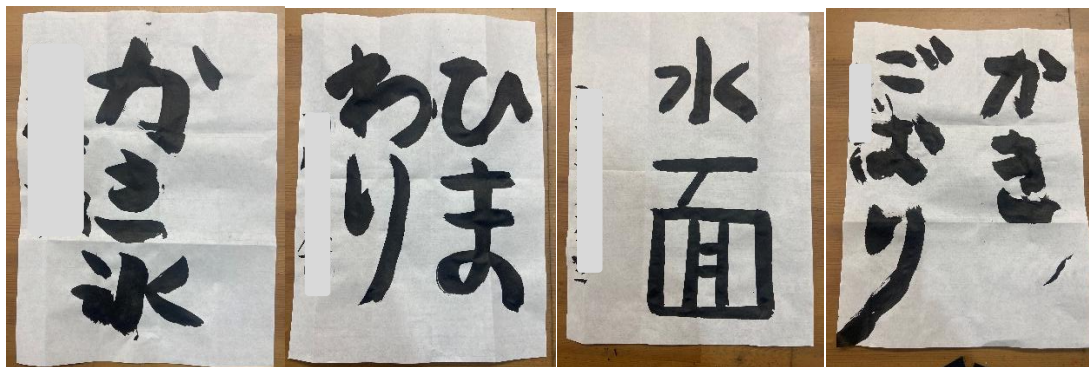 かき氷
ひま
わり
水面
かき
ごおり